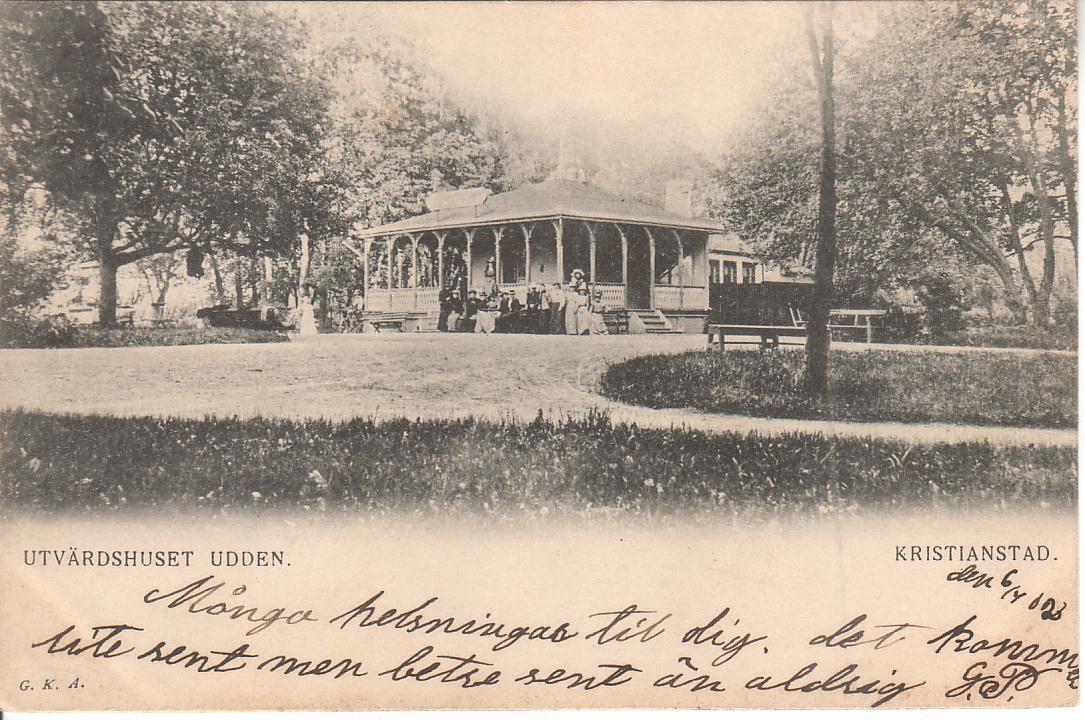 UTVÄRDSHUSET UDDEN.
KRISTIANSTAD.
den 6/7
Många helsningar til dig. det kommer
lite sent men betre sent än aldrig G.P.
G. K. A.